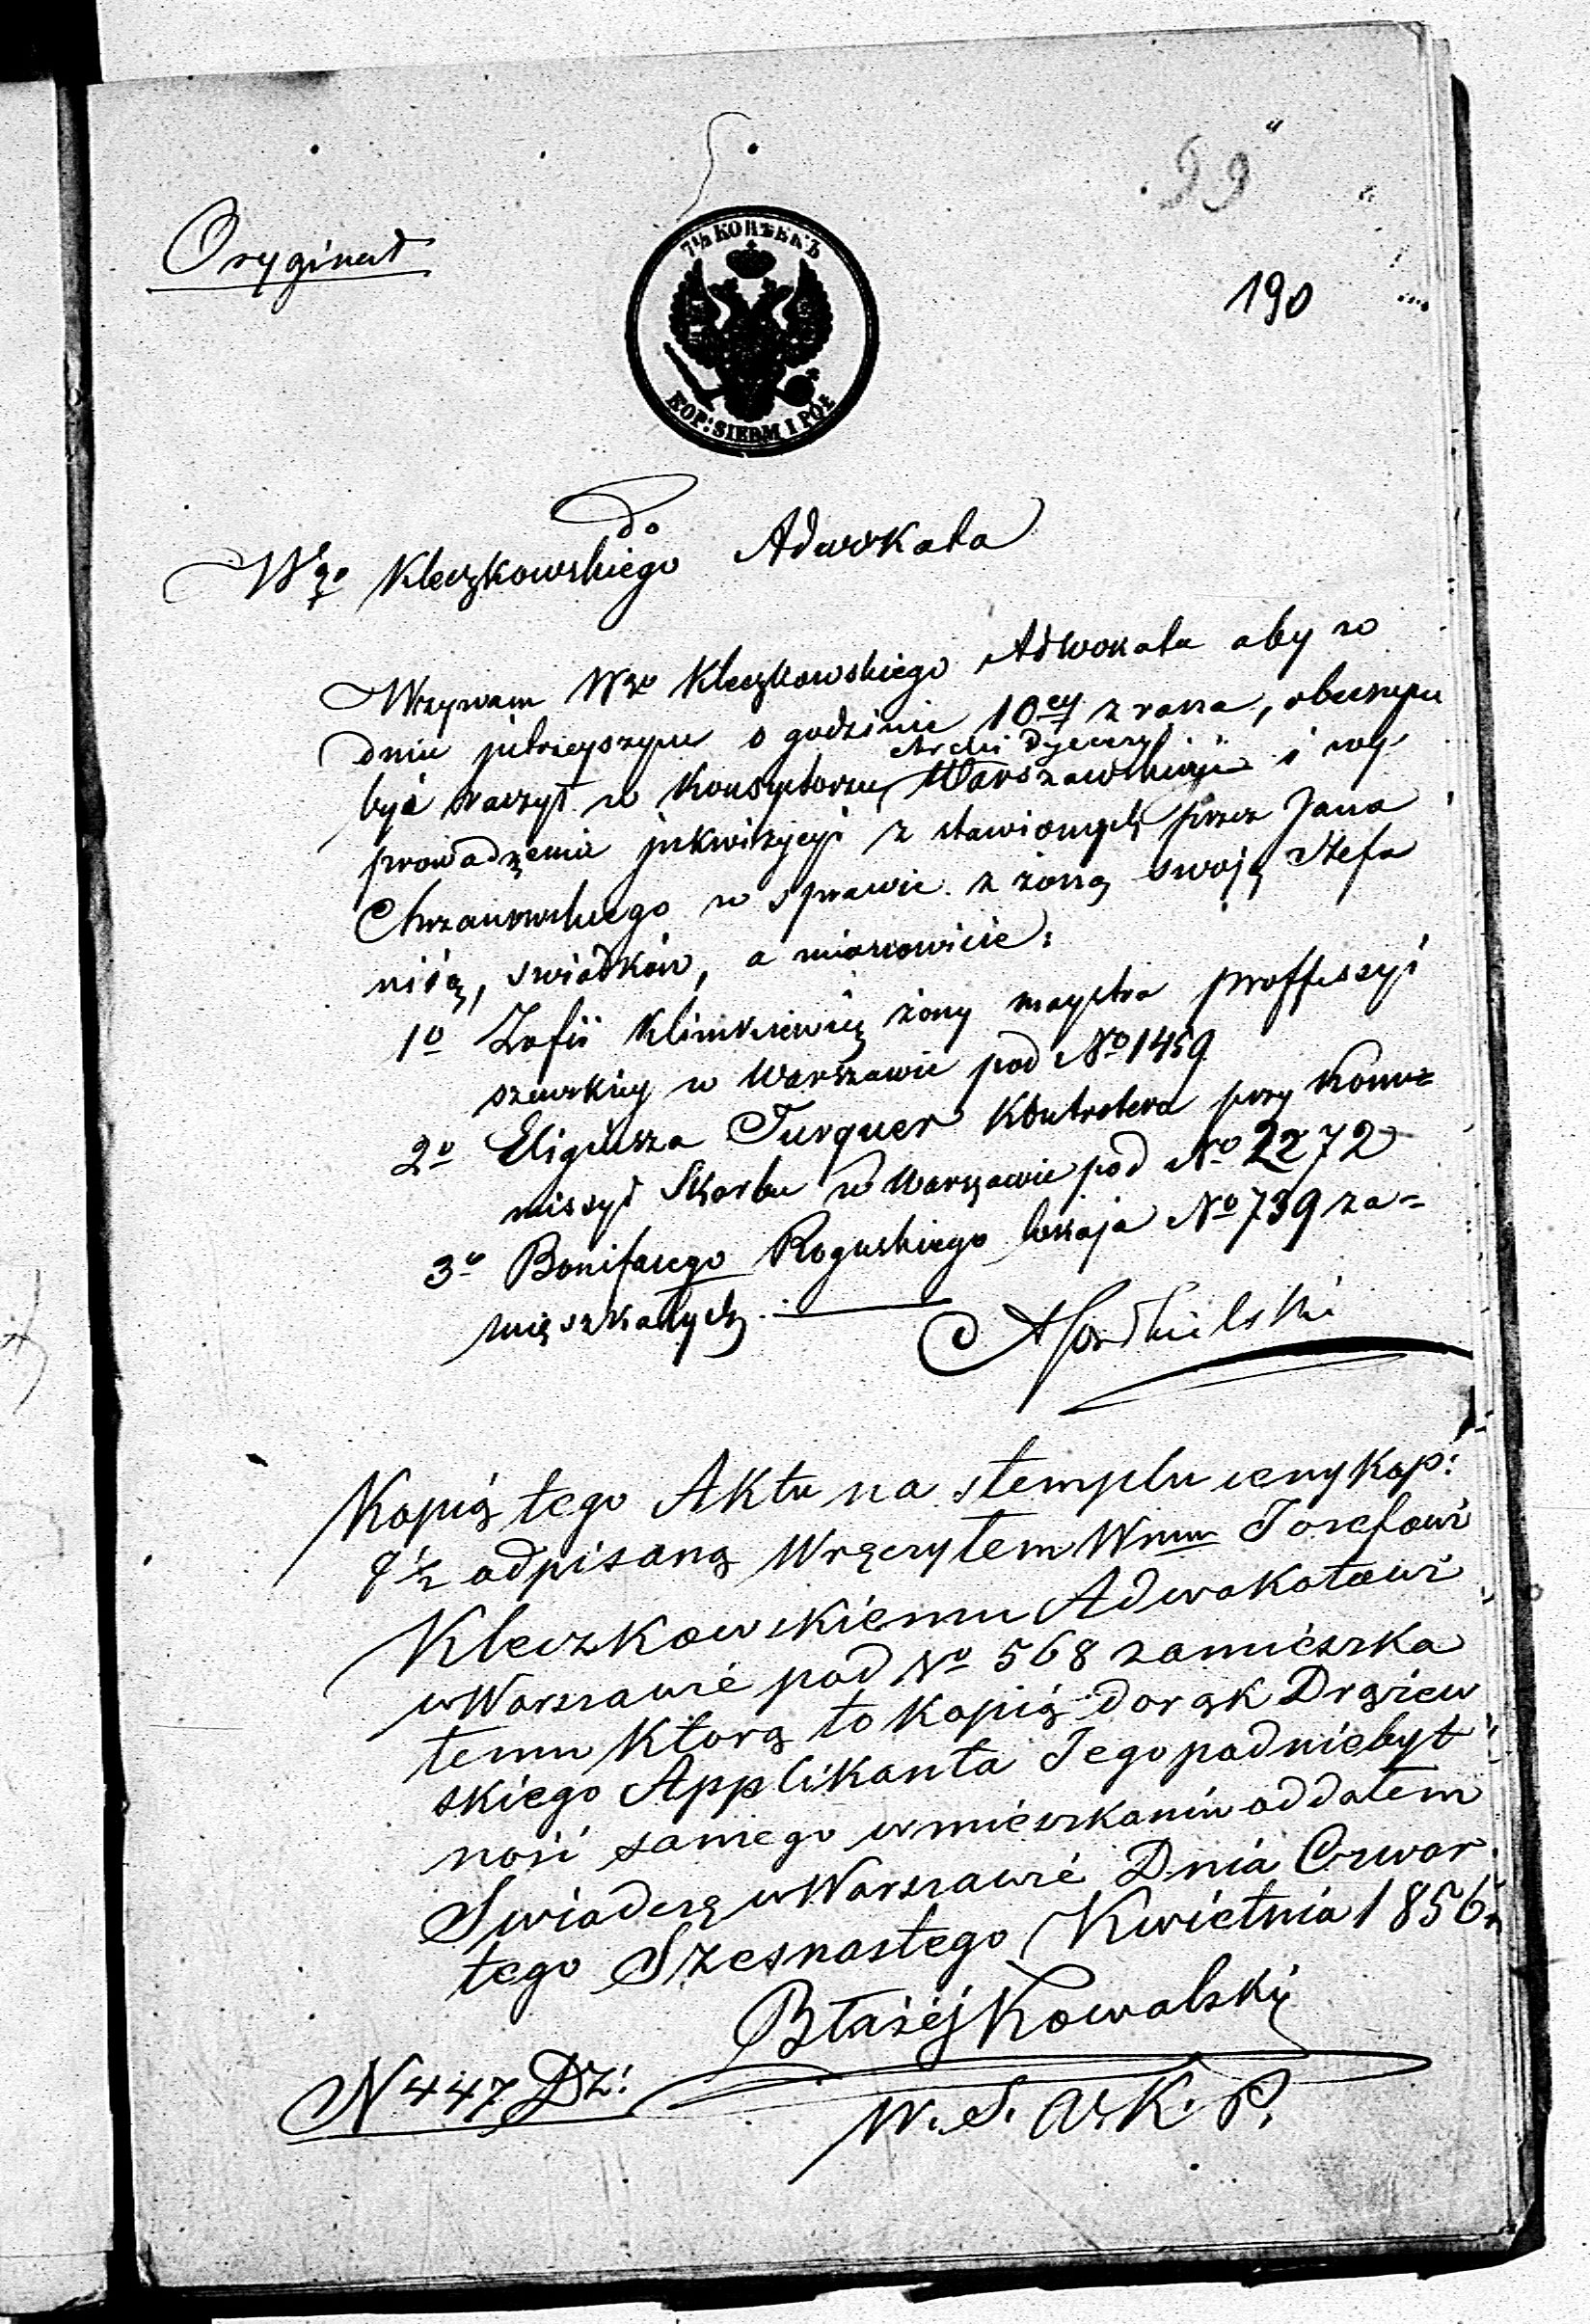 99
190
Oryginał
7½ КОПѢЕКЪ
KOP: SIEDM I PÓŁ
do
Wgo Kleczkowskiego Adwokata
Wzywam Wgo Kleczkowskiego Adwokata aby w
dniu jutrzeyszym o godzinie 10ey z rana, obecnym
być raczył w Konsystorzu Archi Dyecezyi Warszawskiéj i wy-
prowadzenia inkwizycyi z stawionych przez Jana
Chrzanowskiego w sprawie z żoną swoją Stefa
nią, swiadków, a mianowicie:
1o Zofii Klimkiewicz żony maystra proffessyi
szewskiey w Warszawie pod No 1459
2o Eligiusza Turquer Kontrolera przy Kom=
missyi Skarbu w Warszawie pod No 2272
3o Bonifacego Roguskiego lokaja No 739 za=
mieszkałych.
Kopią tego Aktu na stemplu ceny kop:
7½ odpisaną Wręczyłem Wmu Jozefowi
Kleczkowskiemu Adwokatowi
w Warszawie pod No 568 zamieszka
temu Ktorą to Kopią do rąk Drążew
skiego Applikanta Jego pod niebyt
ność samego w mieszkaniu oddałem
Swiadczę w Warszawie Dnia Czwar
tego Szesnastego Kwietnia 1856
Błażéj Kowalski
N 447 Dz:
W. S. A. K. P.